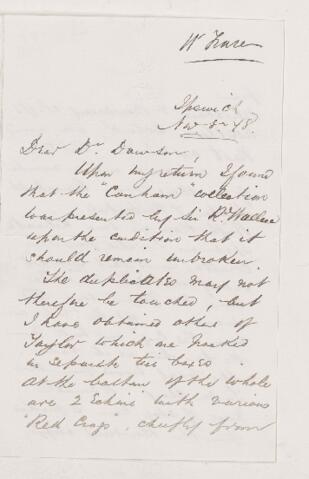 Ipswich
Nov 8 - 78.
Dear Dr. Dawson,
Upon my return I found
that the "Canham" collection
was presented by Sir Rd. Wallace
upon the condition that it
should remain unbroken.
The duplicates may not
therefore be touched, but
I have obtained others of
Taylor which are packed
in separate tin boxes.
At the bottom of the whole
are 2 Echini with various
"Red Crags", chiefly from